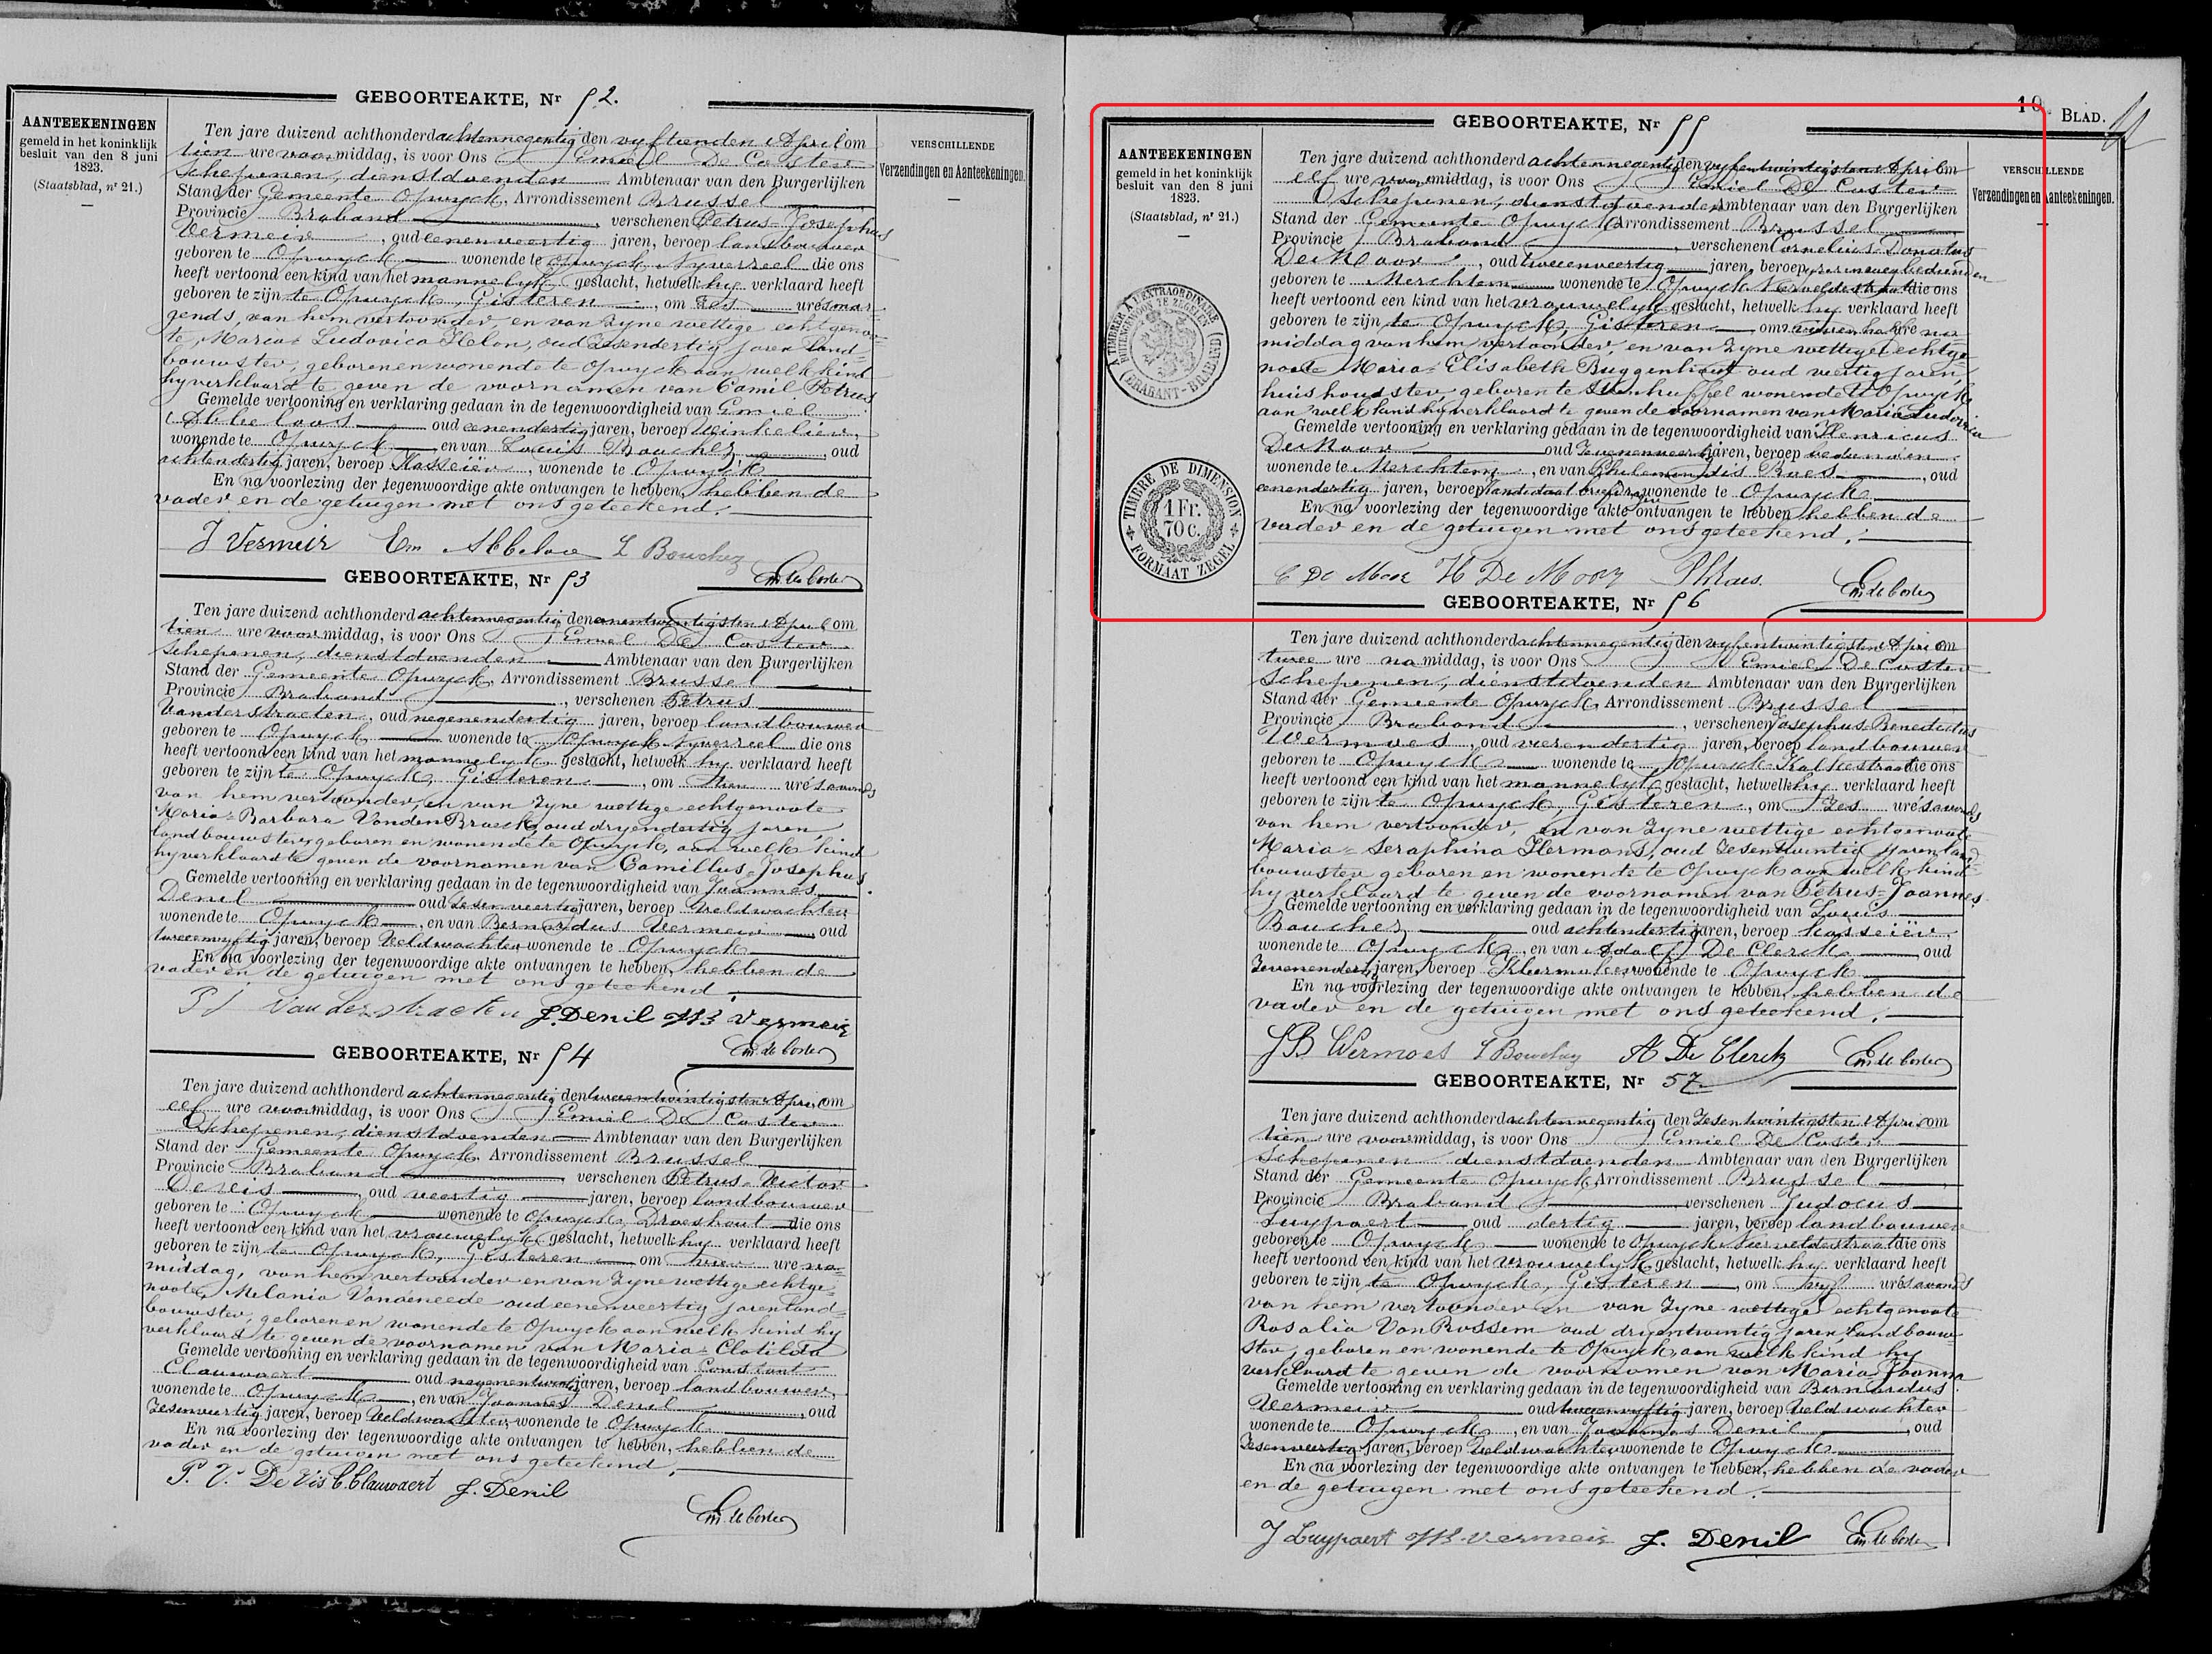 GEBOORTEAKTE, Nr 52.
AANTEEKENINGEN
gemeld in het koninklijk
besluit van den 8 juni
1823.
(Staatsblad, nr 21.)
VERSCHILLENDE
Verzendingen en Aanteekeningen.
Ten jare duizend achthonderd achtennegentig den vyftienden April om
tien ure voormiddag, is voor Ons Emiel De Coster
Schepenen, dienstdoenden Ambtenaar van den Burgerlijken
Stand der Gemeente Opwyck, Arrondissement Brussel
Provincie Braband, verschenen Petrus-Josephus
Vermeir, oud eenenveertig jaren, beroep landbouwer
geboren te Opwyck wonende te Opwyck Nyverseel die ons
heeft vertoond een kind van het mannelyk geslacht, hetwelk hy verklaard heeft
geboren te zijn te Opwyck, Gisteren, om zes ure s'mor
gends, van hem vertoonder, en van zyne wettige echtgenoo-
te, Maria-Ludovica Helon, oud zesendertig jaren land-
bouwster, geboren en wonende te Opwyck aan welk kind
hy verklaard te geven de voornamen van Camil Petrus
Gemelde vertooning en verklaring gedaan in de tegenwoordigheid van Emiel
Abbeloos oud eenendertig jaren, beroep Winkelier,
wonende te Opwyck, en van Louis Bouchez, oud
achtendertig jaren, beroep Kasseier, wonende te Opwyck
En na voorlezing der tegenwoordige akte ontvangen te hebben, hebben de
vader en de getuigen met ons geteekend.
J Vermeir Em Abbeloos L Bouchez
Em. de Coster
GEBOORTEAKTE, Nr 53
Ten jare duizend achthonderd achtennegentig den eenentwintigsten April om
tien ure voormiddag, is voor Ons Emiel De Coster
Schepenen, dienstdoenden Ambtenaar van den Burgerlijken
Stand der Gemeente Opwyck, Arrondissement Brussel
Provincie Braband, verschenen Petrus
Vanderstraeten, oud negenendertig jaren, beroep landbouwer
geboren te Opwyck wonende te Opwyck Nyverseel die ons
heeft vertoond een kind van het mannelyk geslacht, hetwelk hy verklaard heeft
geboren te zijn te Opwyck, Gisteren, om tien ure s'avonds
van hem vertoonder, en van zyne wettige echtgenoote
Maria-Barbara Vanden Broeck, oud dryendertig jaren
landbouwster, geboren en wonende te Opwyck, aan welk kind
hy verklaard te geven de voornamen van Camillus-Josephus
Gemelde vertooning en verklaring gedaan in de tegenwoordigheid van Joannes
Denil oud zesenveertig jaren, beroep Veldwachter
wonende te Opwyck, en van Bernardus Vermeir, oud
tweeenvyftig jaren, beroep Veldwachter wonende te Opwyck
En na voorlezing der tegenwoordige akte ontvangen te hebben, hebben de
vader en de getuigen met ons geteekend.
P J Van der straeten J. Denil B Vermeir
Em. de Coster
GEBOORTEAKTE, Nr 54
Ten jare duizend achthonderd achtennegentig den tweeentwintigsten April om
elf ure voormiddag, is voor Ons Emiel De Coster
Schepenen, dienstdoenden Ambtenaar van den Burgerlijken
Stand der Gemeente Opwyck, Arrondissement Brussel
Provincie Braband verschenen Petrus-Victor
De Vis, oud veertig jaren, beroep landbouwer
geboren te Opwyck wonende te Opwyck, Droeshout die ons
heeft vertoond een kind van het vrouwelyk geslacht, hetwelk hy verklaard heeft
geboren te zijn te Opwyck, Gisteren om vier ure na-
middag, van hem vertoonder en van zyne wettige echtge-
noote, Melania Vandeneede oud eenenveertig jaren land-
bouwster, geboren en wonende te Opwyck aan welk kind hy
verklaard te geven de voornamen van Maria-Clotilda
Gemelde vertooning en verklaring gedaan in de tegenwoordigheid van Constant
Clauwaert oud negenentwintig jaren, beroep landbouwer,
wonende te Opwyck, en van Joannes Denil, oud
zesenveertig jaren, beroep Veldwachter wonende te Opwyck
En na voorlezing der tegenwoordige akte ontvangen te hebben, hebben de
vader en de getuigen met ons geteekend.
P. V. De Vis C. Clauwaert J. Denil
Em. de Coster
10e BLAD.
GEBOORTEAKTE, Nr 55
AANTEEKENINGEN
gemeld in het koninklijk
besluit van den 8 juni
1823.
(Staatsblad, nr 21.)
VERSCHILLENDE
Verzendingen en Aanteekeningen.
A TIMBRER A L'EXTRAORDINAIRE
BUITENGEWOON TE ZEGELEN
(BRABANT-BRABANT)
TIMBRE DE DIMENSION
1 Fr.
70 c.
FORMAAT ZEGEL
Ten jare duizend achthonderd achtennegentig den vyfentwintigsten April om
elf ure voormiddag, is voor Ons Emiel De Coster
Schepenen, dienstdoenden Ambtenaar van den Burgerlijken
Stand der Gemeente Opwyck Arrondissement Brussel
Provincie Braband, verschenen Cornelius Donatus
De Moor, oud tweeenveertig jaren, beroep bedienden
geboren te Merchtem wonende te Opwyck Nerveldestraat die ons
heeft vertoond een kind van het vrouwelyk geslacht, hetwelk hy verklaard heeft
geboren te zijn te Opwyck, Gisteren om ure na
middag van hem vertoonder, en van zyne wettige echtge-
noote Maria-Elisabeth Buggenhout oud veertig jaren,
huishoudster, geboren te Steenhuffel wonende te Opwyck
aan welk kind hy verklaard te geven de voornamen van Maria Ludovica
Gemelde vertooning en verklaring gedaan in de tegenwoordigheid van Henricus
De Moor oud zevenenveertig jaren, beroep bedienden
wonende te Merchtem, en van Philemon Raes, oud
eenendertig jaren, beroep kandidaat wonende te Opwyck
En na voorlezing der tegenwoordige akte ontvangen te hebben hebben de
vader en de getuigen met ons geteekend.
C De Moor H De Moor Ph Raes.
Em. de Coster
GEBOORTEAKTE, Nr 56
Ten jare duizend achthonderd achtennegentig den vyfentwintigsten April om
twee ure namiddag, is voor Ons Emiel De Coster
Schepenen, dienstdoenden Ambtenaar van den Burgerlijken
Stand der Gemeente Opwyck, Arrondissement Brussel
Provincie Braband, verschenen Josephus Benedictus
Wermoes, oud vierendertig jaren, beroep landbouwer
geboren te Opwyck wonende te Opwyck Kalkestraat die ons
heeft vertoond een kind van het mannelyk geslacht, hetwelk hy verklaard heeft
geboren te zijn te Opwyck, Gisteren, om zes ure s'avonds
van hem vertoonder, en van zyne wettige echtgenoote
Maria-Seraphina Hermans, oud zesentwintig jaren land-
bouwster geboren en wonende te Opwyck aan welk kind
hy verklaard te geven de voornamen van Petrus-Joannes
Gemelde vertooning en verklaring gedaan in de tegenwoordigheid van Louis
Bouchez oud achtendertig jaren, beroep kasseiër,
wonende te Opwyck, en van Adolf De Clerck, oud
zevenendertig jaren, beroep Kleermaker wonende te Opwyck
En na voorlezing der tegenwoordige akte ontvangen te hebben, hebben de
vader en de getuigen met ons geteekend.
J B Wermoes L Bouchez A De Clerck
Em. de Coster
GEBOORTEAKTE, Nr 57
Ten jare duizend achthonderd achtennegentig den zesentwintigsten April om
tien ure voormiddag, is voor Ons Emiel De Coster
Schepenen dienstdoenden Ambtenaar van den Burgerlijken
Stand der Gemeente Opwyck, Arrondissement Brussel
Provincie Braband verschenen Judocus
Luypaert oud dertig jaren, beroep landbouwer
geboren te Opwyck wonende te Opwyck Nerveldestraat die ons
heeft vertoond een kind van het vrouwelyk geslacht, hetwelk hy verklaard heeft
geboren te zijn te Opwyck, Gisteren, om vyf ure s'avonds
van hem vertoonder en van zyne wettige echtgenoote
Rosalia Van Rossem oud dryentwintig jaren landbouw-
ster, geboren en wonende te Opwyck, aan welk kind hy
verklaard te geven de voornamen van Maria Joanna
Gemelde vertooning en verklaring gedaan in de tegenwoordigheid van Bernardus
Vermeir oud tweeenvyftig jaren, beroep Veldwachter
wonende te Opwyck, en van Joannes Denil, oud
zesenveertig jaren, beroep Veldwachter wonende te Opwyck
En na voorlezing der tegenwoordige akte ontvangen te hebben, hebben de vader
en de getuigen met ons geteekend.
J Luypaert B. Vermeir J. Denil
Em. de Coster